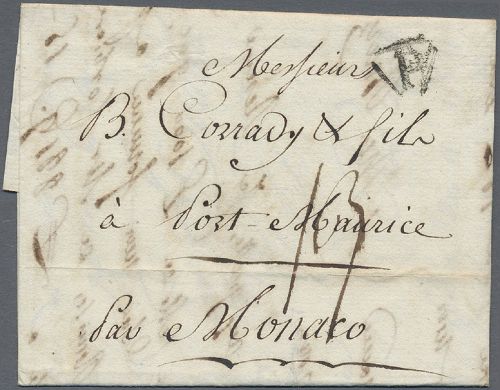 Messieur
B. Corrady & fils
à Port-Maurice
13
par Monaco